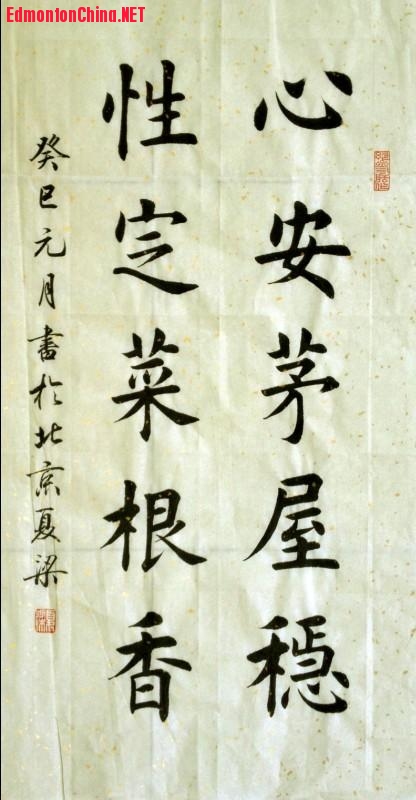 EdmontonChina.NET
心安茅屋穩
性定菜根香
癸巳元月書於北京夏梁